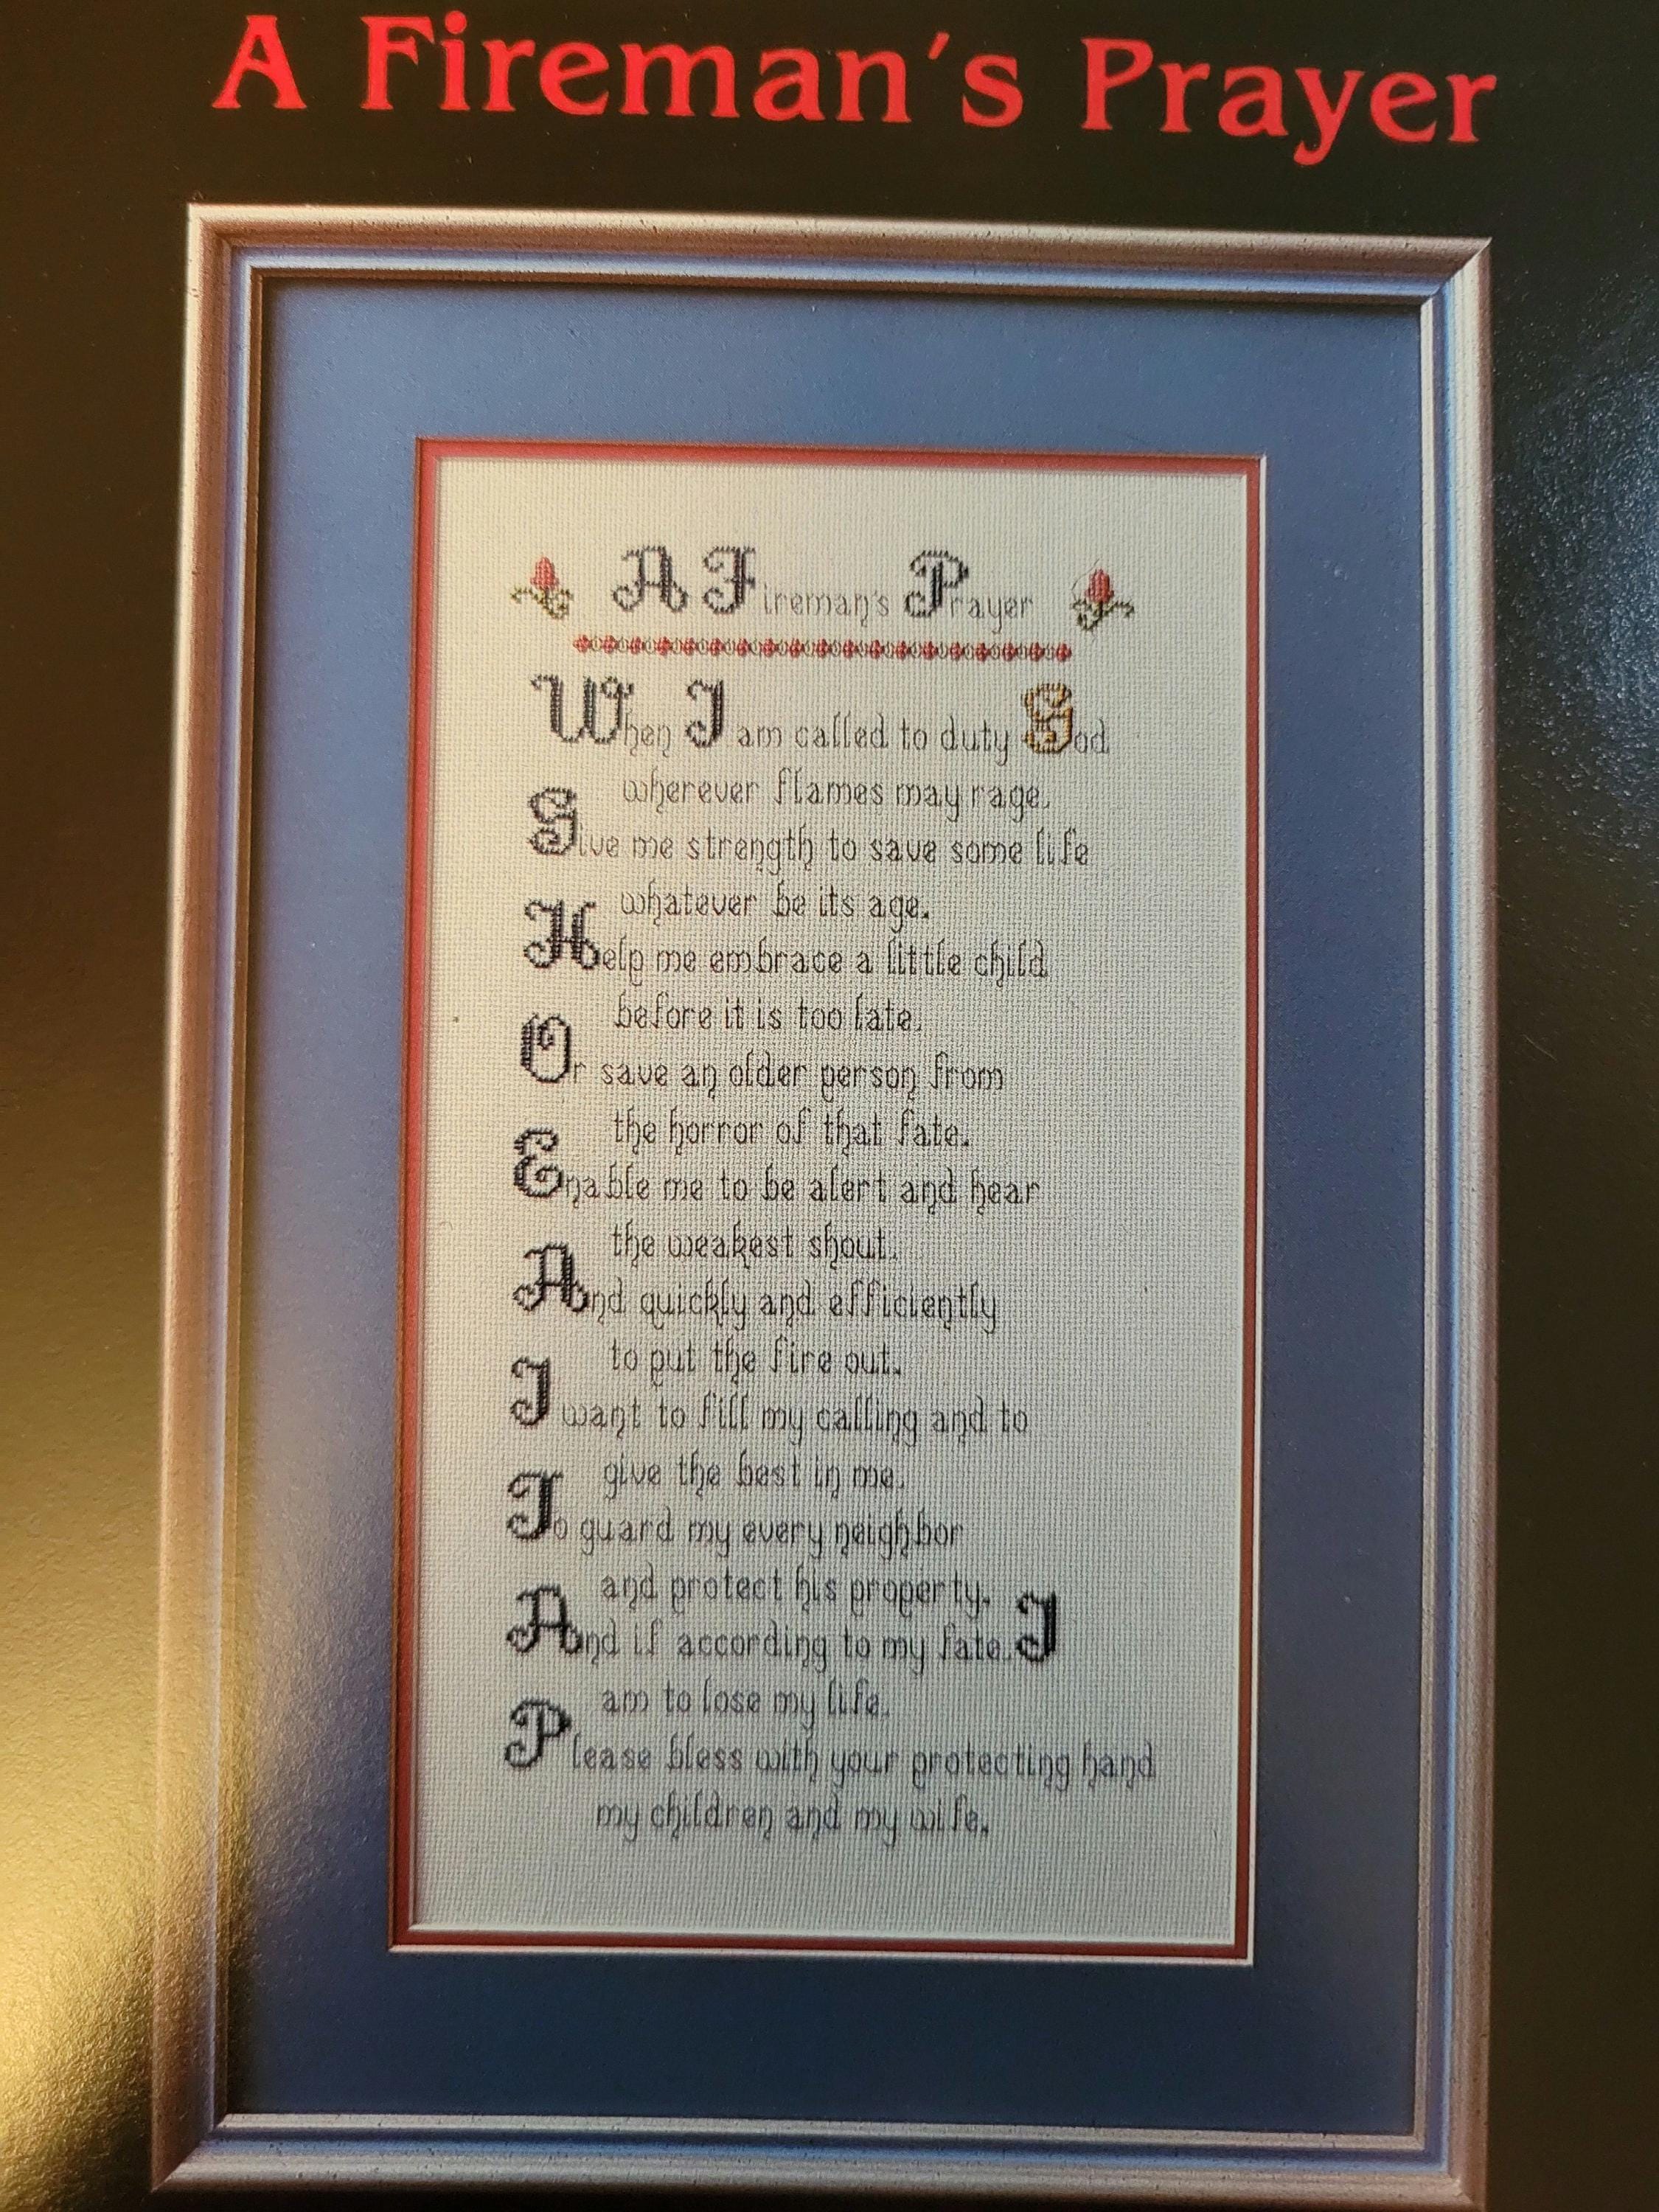 A Fireman's Prayer
A Fireman's Prayer
When I am called to duty God
wherever flames may rage.
Give me strength to save some life
whatever be its age.
Help me embrace a little child
before it is too late.
Or save an older person from
the horror of that fate.
Enable me to be alert and hear
the weakest shout.
And quickly and efficiently
to put the fire out.
I want to fill my calling and to
give the best in me.
To guard my every neighbor
and protect his property.
And if according to my fate I
am to lose my life.
Please bless with your protecting hand
my children and my wife.